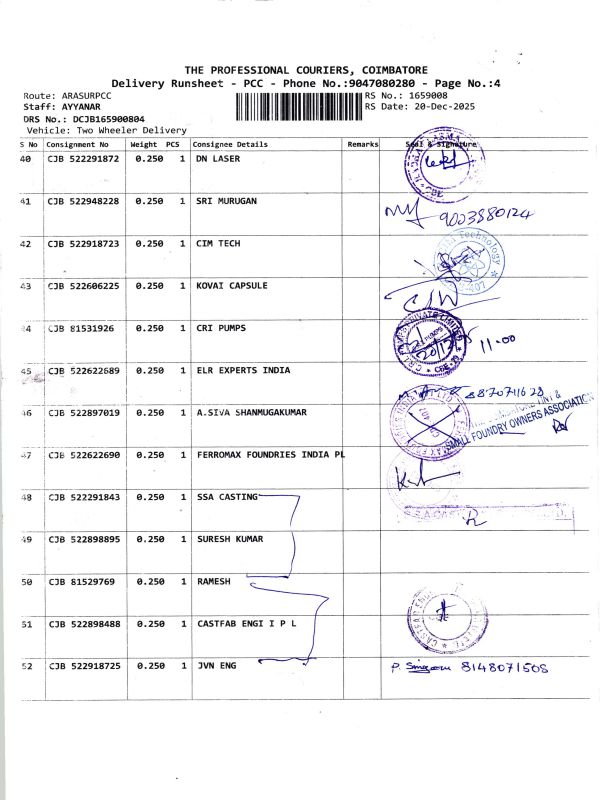 THE PROFESSIONAL COURIERS, COIMBATORE
Delivery Runsheet - PCC - Phone No.:9047080280 - Page No.:4
Route: ARASURPCC RS No.: 1659008
Staff: AYYANAR RS Date: 20-Dec-2025
DRS No.: DCJB165900804
Vehicle: Two Wheeler Delivery
S No Consignment No Weight PCS Consignee Details Remarks Seal & Signature
40 CJB 522291872 0.250 1 DN LASER
41 CJB 522948228 0.250 1 SRI MURUGAN 9003880124
42 CJB 522918723 0.250 1 CIM TECH Technology
43 CJB 522606225 0.250 1 KOVAI CAPSULE
44 CJB 81531926 0.250 1 CRI PUMPS 11-00
45 CJB 522622689 0.250 1 ELR EXPERTS INDIA
46 CJB 522897019 0.250 1 A.SIVA SHANMUGAKUMAR
SMALL FOUNDRY OWNERS ASSOCIATION
47 CJB 522622690 0.250 1 FERROMAX FOUNDRIES INDIA PL
48 CJB 522291843 0.250 1 SSA CASTING
49 CJB 522898895 0.250 1 SURESH KUMAR
50 CJB 81529769 0.250 1 RAMESH
51 CJB 522898488 0.250 1 CASTFAB ENGI I P L
52 CJB 522918725 0.250 1 JVN ENG P. 8148071508